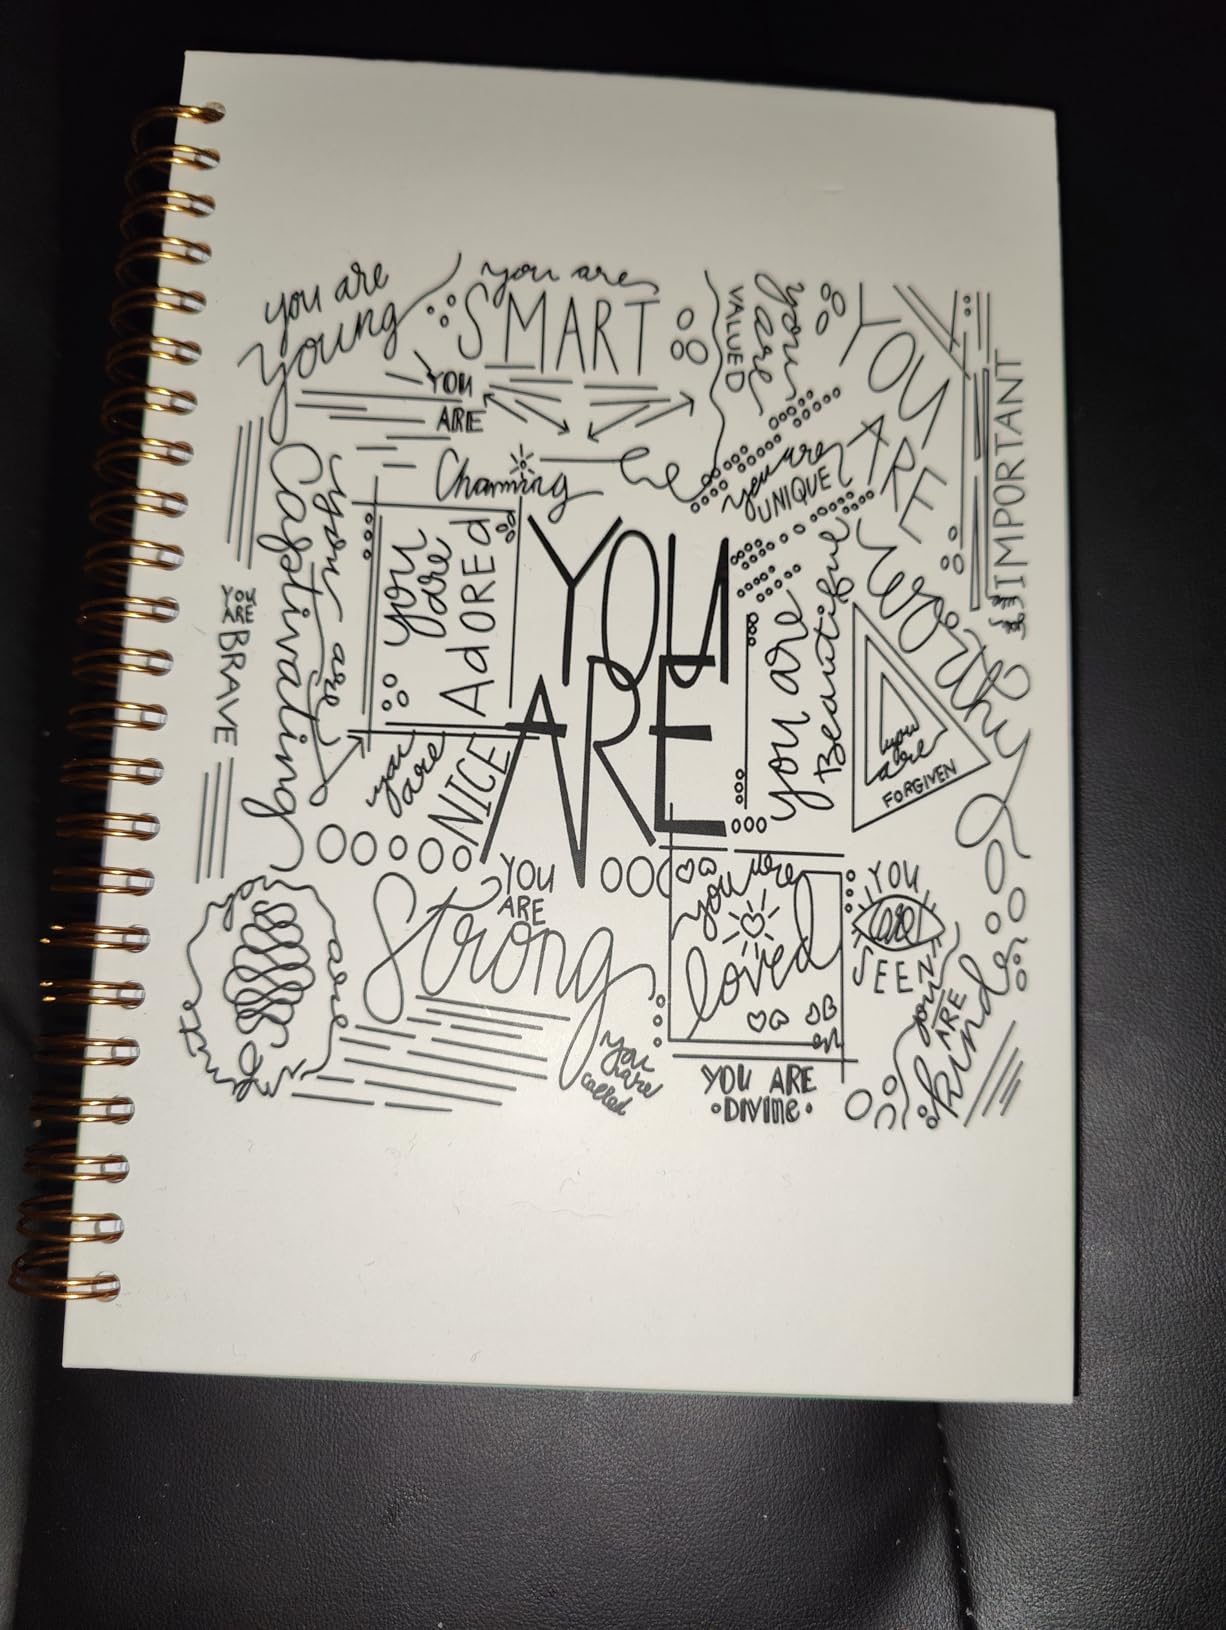 you are
young
you are
SMART
you are
VALUED
YOU
ARE
worthy
you are
IMPORTANT
YOU
ARE
Charming
you are
UNIQUE
you are
Captivating
you are
AdOREd
YOU
ARE
you are
Beautiful
YOU
ARE
BRAVE
you are
NICE
you are
FORGIVEN
YOU
ARE
Strong
you are
loved
YOU
are
SEEN
you
ARE
kind
you
are
you
are
called
YOU ARE
DIVINE